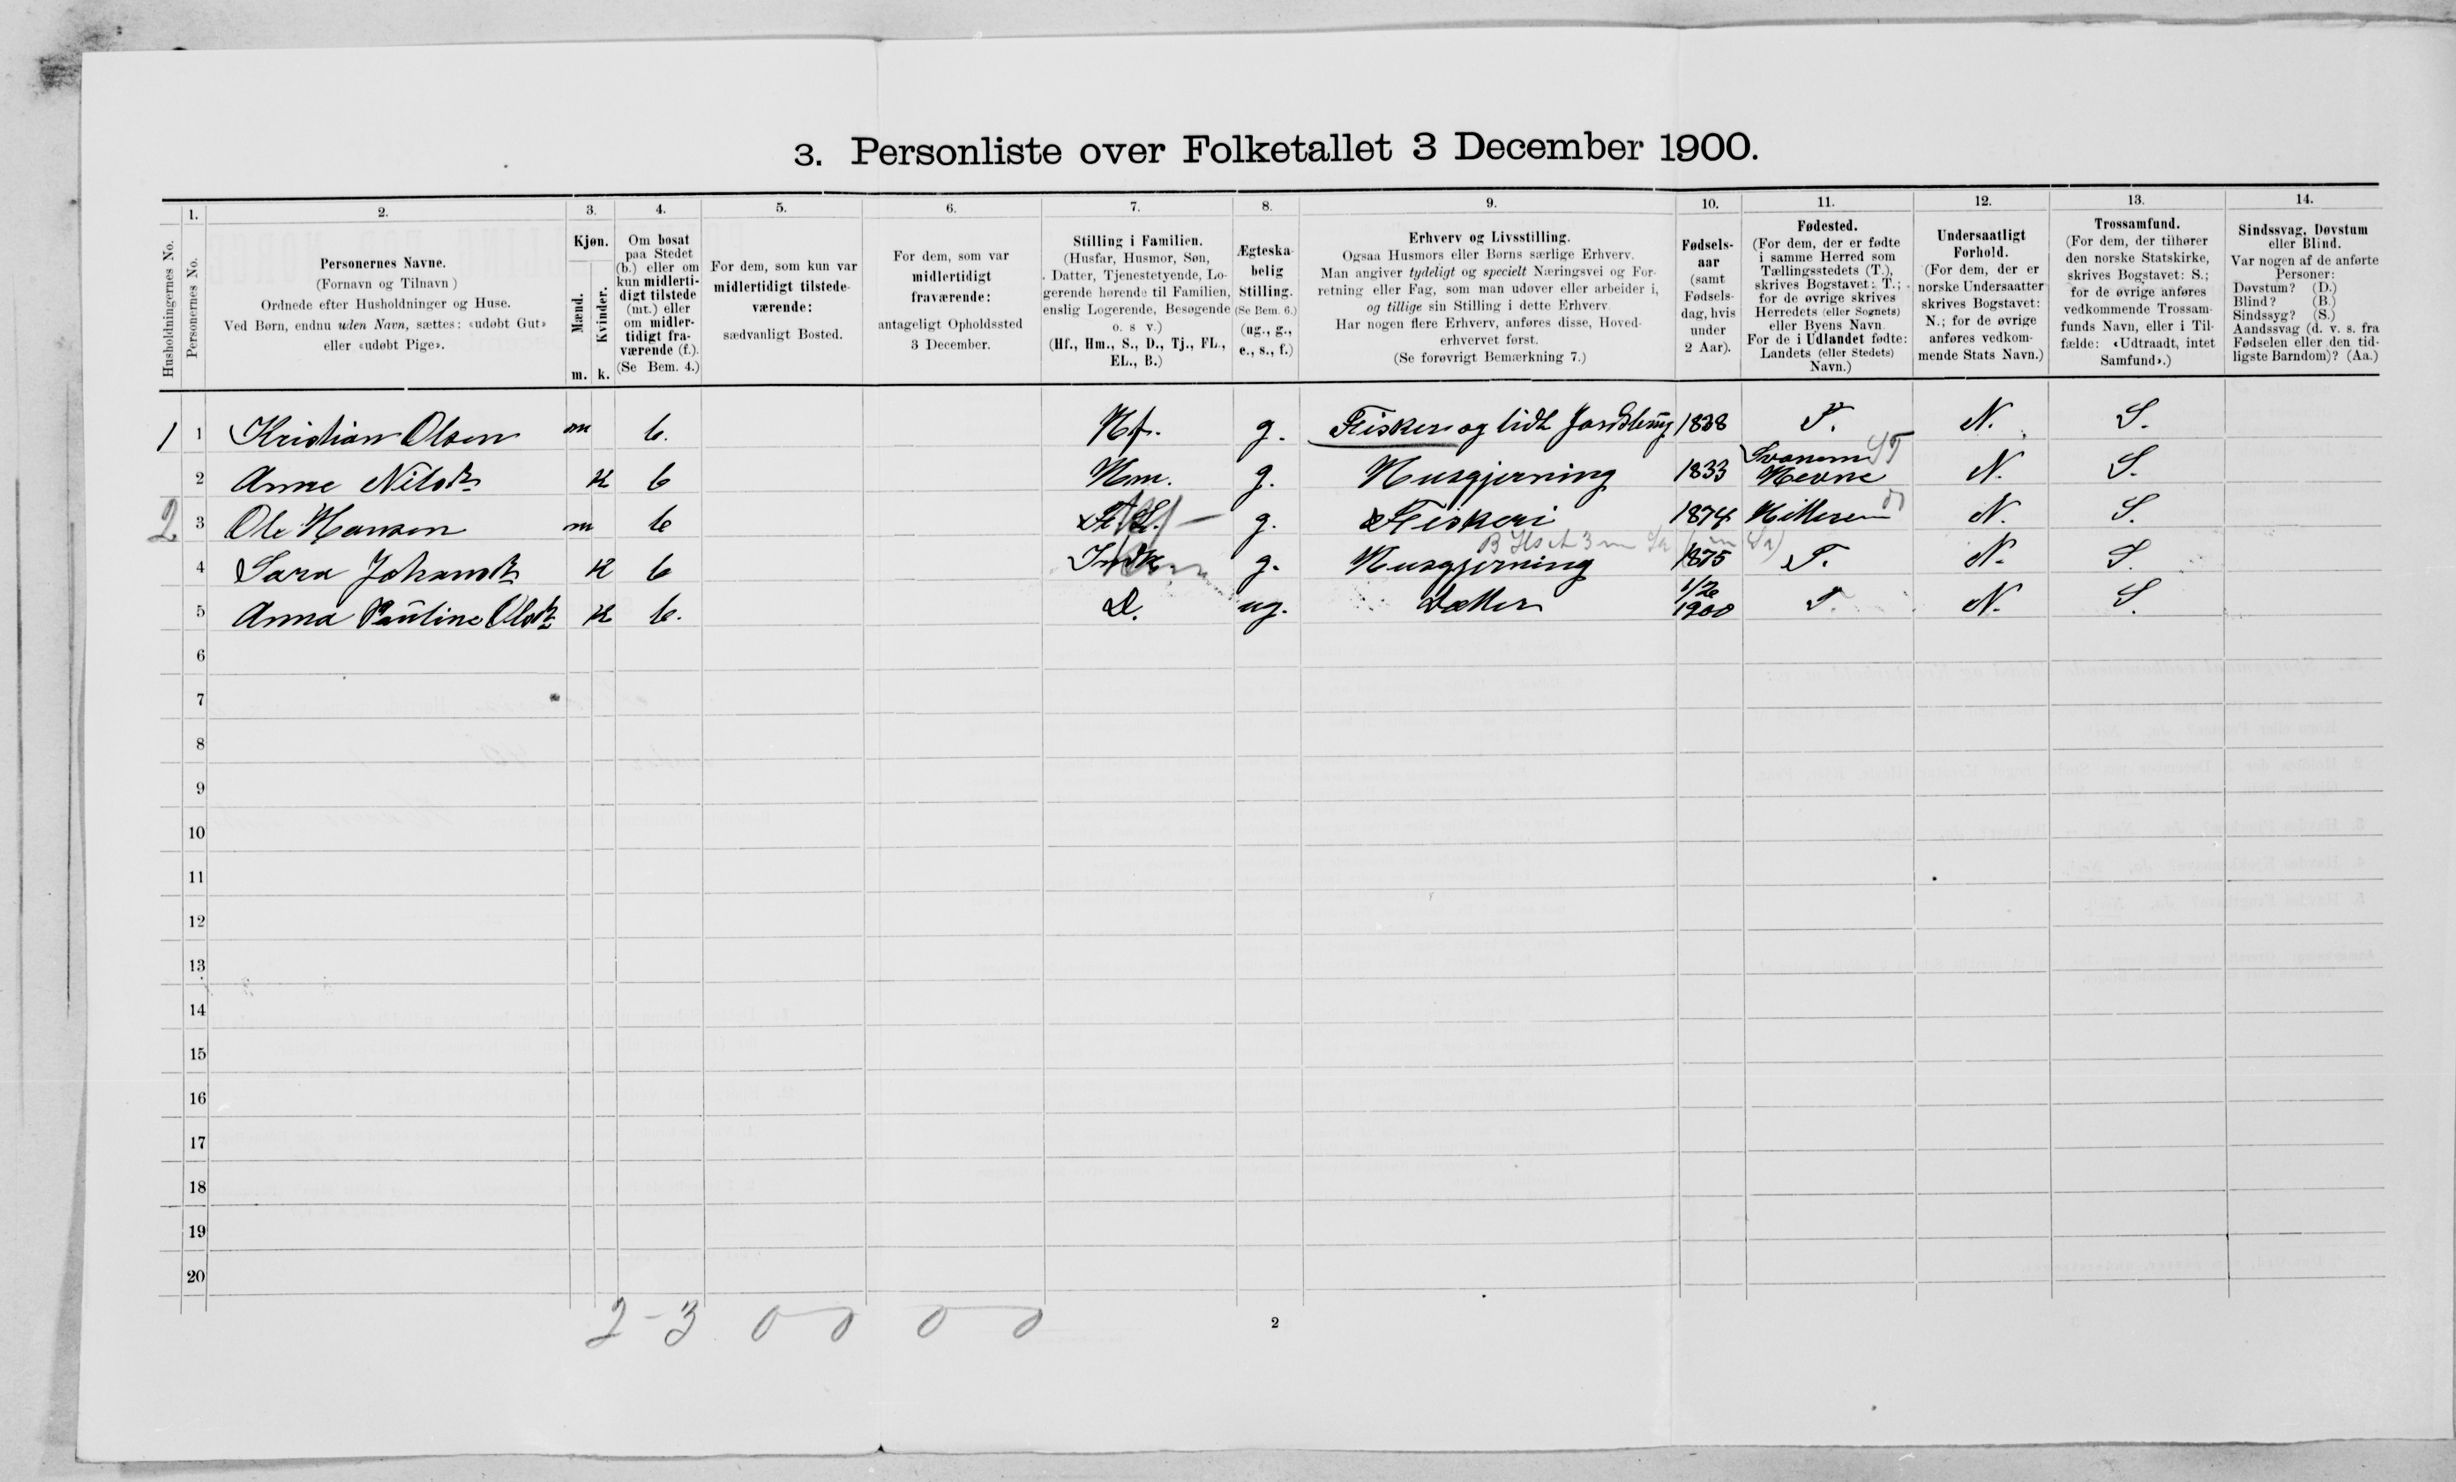 3. Personliste over Folketallet 3 December 1900.
Husholdningernes No.
1.
Personernes No.
2.
Personernes Navne.
(Fornavn og Tilnavn)
Ordnede efter Husholdninger og Huse.
Ved Børn, endnu uden Navn, sættes: «udøbt Gut»
eller «udøbt Pige».
3.
Kjøn.
Mænd.
Kvinder.
m. k.
4.
Om bosat
paa Stedet
(b.) eller om
kun midlerti-
digt tilstede
(mt.) eller
om midler-
tidigt fra-
værende (f.).
(Se Bem. 4.)
5.
For dem, som kun var
midlertidigt tilstede-
værende:
sædvanligt Bosted.
6.
For dem, som var
midlertidigt
fraværende:
antageligt Opholdssted
3 December.
7.
Stilling i Familien.
(Husfar, Husmor, Søn,
Datter, Tjenestetyende, Lo-
gerende hørende til Familien,
enslig Logerende, Besøgende
o. s v.)
(Hf., Hm., S., D., Tj., FL.,
EL., B.)
8.
Ægteska-
belig
Stilling.
(Se Bem. 6.)
(ug., g.,
e., s., f.)
9.
Erhverv og Livsstilling.
Ogsaa Husmors eller Børns særlige Erhverv.
Man angiver tydeligt og specielt Næringsvei og For-
retning eller Fag, som man udøver eller arbeider i,
og tillige sin Stilling i dette Erhverv.
Har nogen flere Erhverv, anføres disse, Hoved-
erhvervet først.
(Se forøvrigt Bemærkning 7.)
10.
Fødsels-
aar
(samt
Fødsels-
dag, hvis
under
2 Aar).
11.
Fødested.
(For dem, der er fødte
i samme Herred som
Tællingsstedets (T.),
skrives Bogstavet: T.;
for de øvrige skrives
Herredets (eller Sognets)
eller Byens Navn.
For de i Udlandet fødte:
Landets (eller Stedets)
Navn.)
12.
Undersaatligt
Forhold.
(For dem, der er
norske Undersaatter
skrives Bogstavet:
N.; for de øvrige
anføres vedkom-
mende Stats Navn.)
13.
Trossamfund.
(For dem, der tilhører
den norske Statskirke,
skrives Bogstavet: S.;
for de øvrige anføres
vedkommende Trossam-
funds Navn, eller i Til-
fælde: «Udtraadt, intet
Samfund».)
14.
Sindssvag, Døvstum
eller Blind.
Var nogen af de anførte
Personer:
Døvstum? (D.)
Blind? (B.)
Sindssyg? (S.)
Aandssvag (d. v. s. fra
Fødselen eller den tid-
ligste Barndom)? (Aa.)
1 1 Kristian Olsen m b. Hf. g. Fiskeri og lidt Jordbrug 1838 T. N. S.
2 Anne Nilsdt k b Hm. g. Husgjerning 1833 Hevne N. S.
2 3 Ole Hansen m b g. Fiskeri 1874 Hitteren N. S.
4 Sara Johansdt k b g. Husgjerning 1875 T. N. S.
5 Anna Pauline Olsdt k b. D. ug. Datter 1900 T. N. S.
6
7
8
9
10
11
12
13
14
15
16
17
18
19
20
2-3 0 0 0 0
2